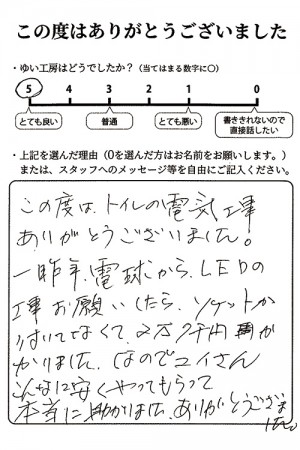 この度はありがとうございました
・ゆい工房はどうでしたか？（当てはまる数字に〇）
5 4 3 2 1 0
とても良い 普通 とても悪い 書ききれないので直接話したい
・上記を選んだ理由（0を選んだ方はお名前をお願いします。）
または、スタッフへのメッセージ等を自由にご記入ください。
この度は、トイレの電気工事
ありがとうございました。
一昨年、電球から、LEDの
工事お願いしたら、ソケットが
付いてなくて、2万7千円
かかりました。なのでユイさん
こんなに安くやってもらって
本当に助かりました。ありがとうございま
した。